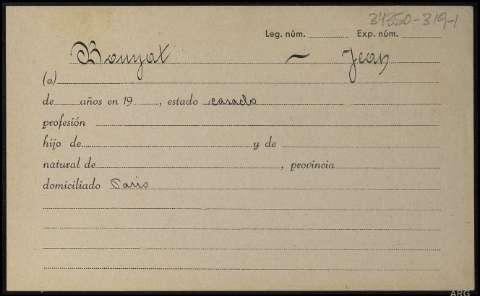 34350-319-1
Leg. núm. Exp. núm.
Bonyat ~ Jean
(a)
de años en 19 , estado casado
profesión
hijo de y de
natural de , provincia
domiciliado Paris
ARG